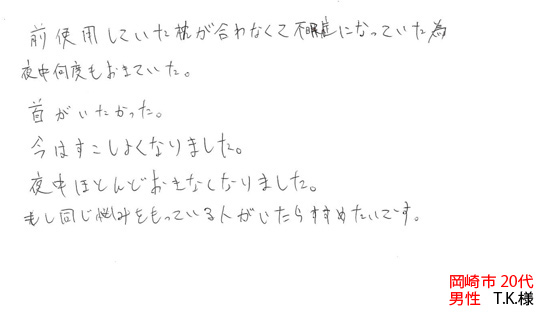 前使用していた枕が合わなくて不眠症になっていた為
夜中何度もおきていた。
首がいたかった。
今はすこしよくなりました。
夜中ほとんどおきなくなりました。
もし同じ悩みをもっている人がいたらすすめたいです。
岡崎市 20代
男性 T.K.様